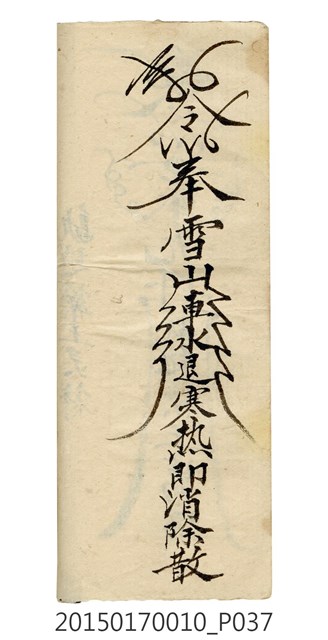 令奉雪山車水退寒热即消除散
20150170010_P037